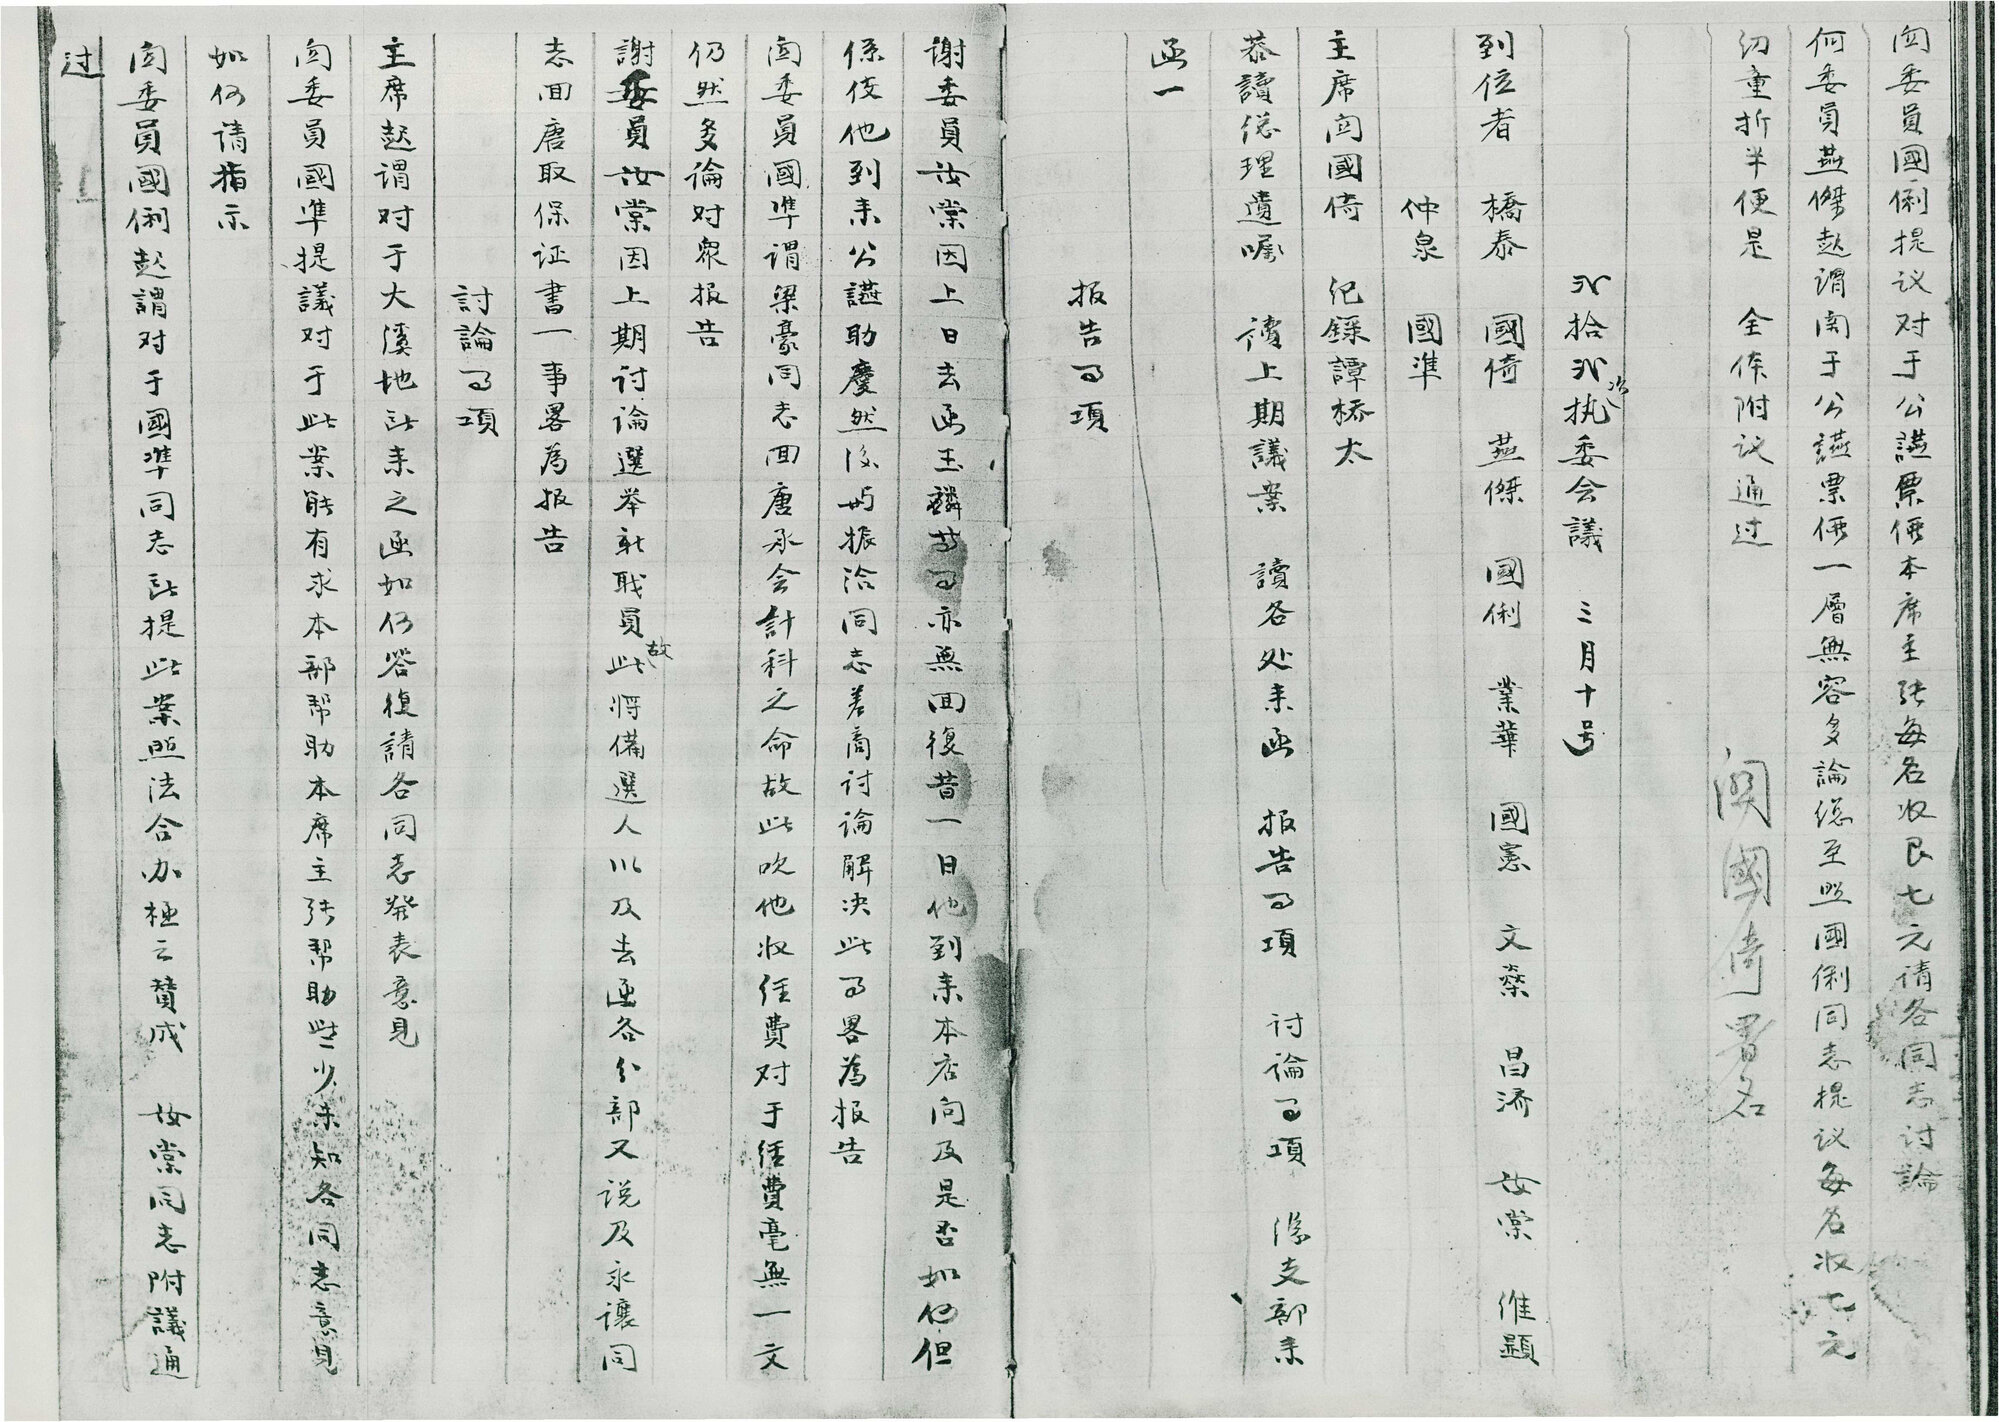 関委員國俐提议对于公讌票価本席主张每名收艮七元请各同志讨論
何委員燕傑起谓関于公讌票価一層無容多論总至照國俐同志提议每名收七元
幼童折半便是　全体附议通过
関國倚署名
次
弍拾弍执委会議　三月十号
到位者　橋泰　國倚　燕傑　國俐　業華　國憲　文燊　昌济　女棠　維顕
仲泉　國準
主席関國倚　纪錄譚桥太
恭讀總理遺囑　讀上期議案　讀各处来函　报告事項　討論事項　支部来
函一
报告事項
谢委員女棠因上日去函玉麟芳事亦無回復昔一日他到来本店问及是否如何但
係伎他到来公讌助慶然后與振洽同志差商讨論解决此事畧為报告
関委員國準谓梁豪同志回唐承会計科之命故此吹他收经費对于経費毫無一文
仍然多論对眾报告
謝委員女棠因上期讨論選举新职員故此将备選人以及去函各分部又说及永讓同
志回唐取保证書一事畧為报告
討論事項
主席起谓对于大溪地所来之函如何答復請各同志発表意見
関委員國準提議对于此案能有求本部帮助本席主张帮助些少未知各同志意見
如何请指示
関委員國俐起謂对于國準同志所提此案照法合办極之贊成　女棠同志附議通
过